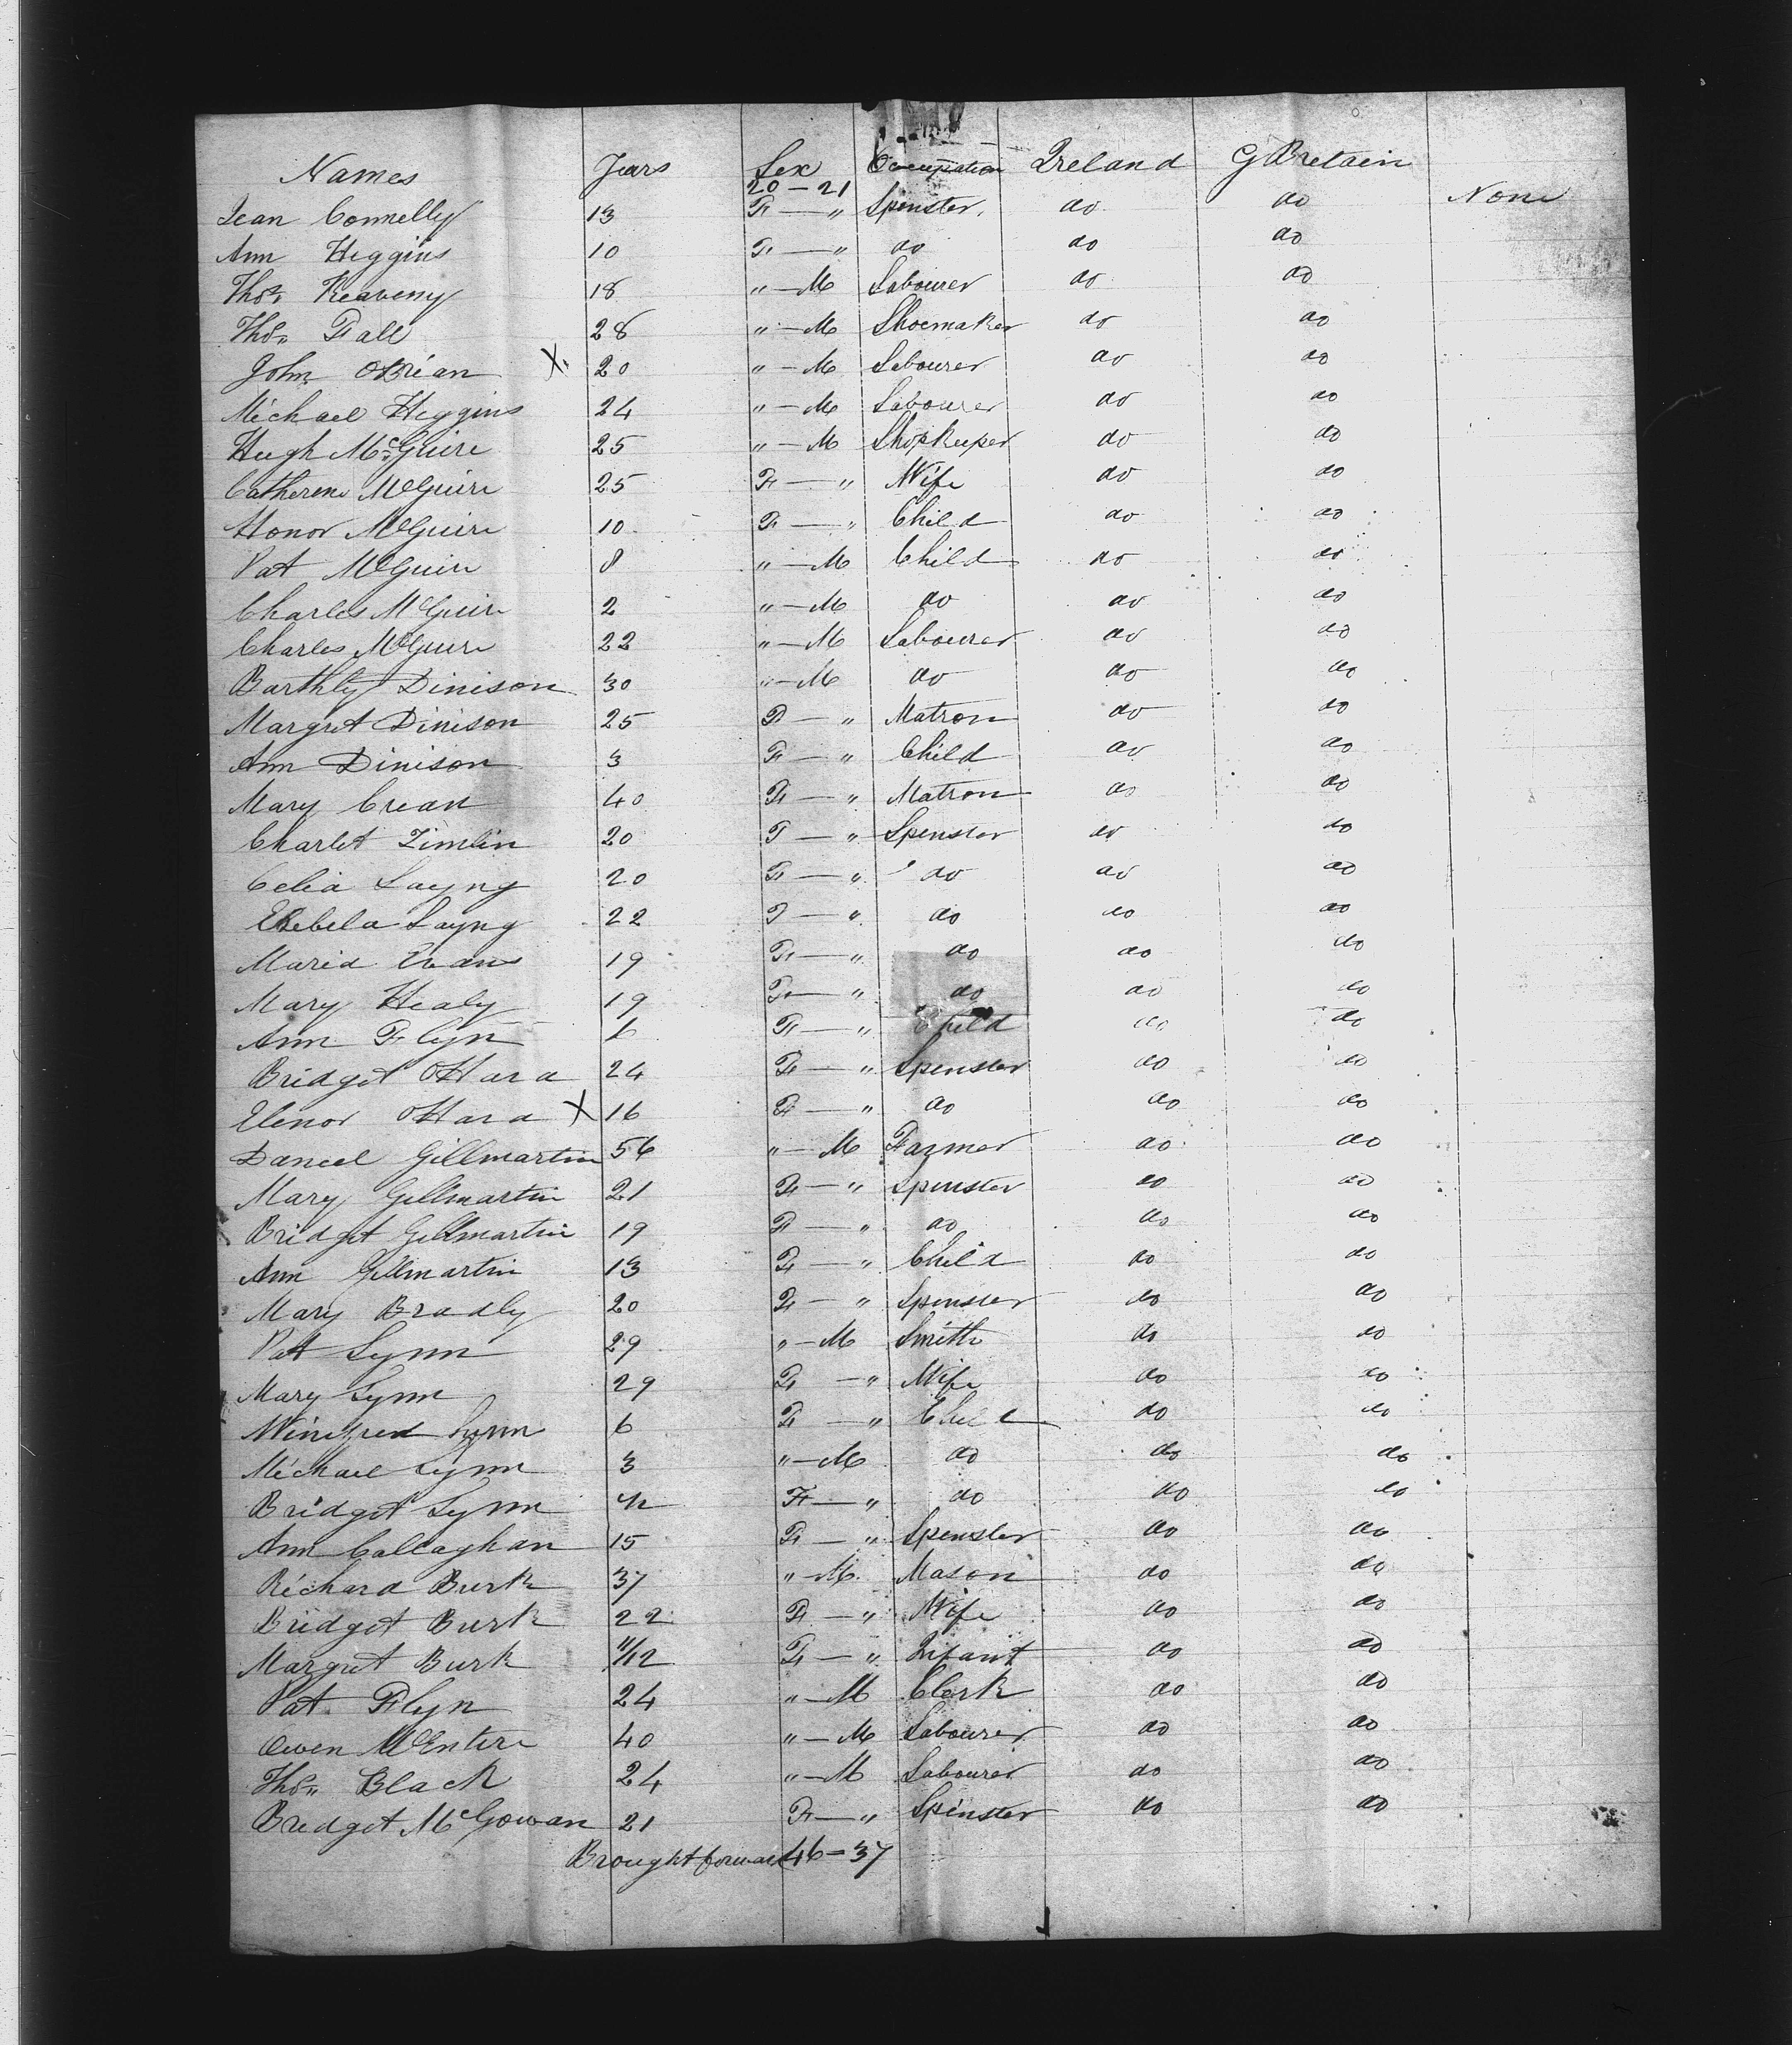 Names Years Sex Occupation Ireland G Bretain
20 – 21
Jean Connelly 13 F — " Spinster, do do None
Ann Heggins 10 F — " do do do
Thos. Reaveny 18 " — M Labourer do do
Thos. Fall 28 " — M Shoemaker do do
John OBrian X 20 " — M Labourer do do
Michael Heggins 24 " — M Labourer do do
Hugh McGuire 25 " — M Shopkeeper do do
Catherine McGuire 25 F — " Wife do do
Honor McGuire 10 F — " Child do do
Pat McGuire 8 " — M Child do do
Charles McGuire 2 " — M do do do
Charles McGuire 22 " — M Labourer do do
Barthly Dinison 30 " — M do do do
Margret Dinison 25 F — " Matron do do
Ann Dinison 3 F — " Child do do
Mary Crean 40 F — " Matron do do
Charlet Timlin 20 F — " Spenster do do
Celia Layng 20 F — " do do do
Layng 22 F — " do do do
Maria Evans 19 F — " do do do
Mary Healy 19 F — " do do do
Ann Flyn 6 F — " Child do do
Bridget OHara 24 F — " Spenster do do
Elenor OHara X 16 F — " do do do
Daneel Gillmartin 56 " — M Farmer do do
Mary Gillmartin 21 F — " Spenster do do
Bridget Gillmartin 19 F — " do do do
Ann Gillmartin 13 F — " Child do do
Mary Bradly 20 F — " Spenster do do
Pat Lynn 29 " — M Smith do do
Mary Lynn 29 F — " Wife do do
Winefred Lynn 6 F — " Child do do
Michael Lynn 3 " — M do do do
Bridget Lynn F — " do do do
Ann Callaghan 15 F — " Spenster do do
Richard Burk 37 " — M. Mason do do
Bridget Burk 22 F — " Wife do do
Margret Burk 11/12 F — " Infant do do
Pat Flyn 24 " — M Clerk do do
Owen McEntire 40 " — M Labourer do do
Thos. Black 24 " — M Labourer do do
Bredget McGowan 21 F — " Spinster do do
Brought forward 46 – 37